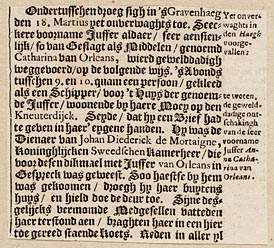 Ondertusschen droeg sigh in 's Gravenhaeg
den 18. Martius yet onverwaghts toe. Seec-
kere voorname Juffer aldaer / seer aensien-
lijk / so van Geslagt als Middelen / genoemd
Catharina van Orleans, wierd geweldadigh
weggevoerd / op de volgende wijs. 's Avonds
tusschen 9. en 10. quam een persoon / gekleed
als een Schipper / voor 't Huys der genoem-
de Juffer / woonende by haere Moey op den
Kneuterdijck. Seyde / dat hy een Brief had
te geven in haer' eygene handen. Hy was de
Dienaar van Johan Diederick de Mortaigne,
Koninghlijcken Sweedschen Kamerheer / die
voor desen dikmael met Juffer van Orleans in
Gespreck was geweest. Soo haestse by hem
was gekoomen / droegh hy haer buytens
huys / en hield doe de deur toe. Sijne des-
gelijcks vermomde Medgesellen vatteden
haer terstond aen / braghten haer in een hier
toe gereed staende Koets. Reden in aller yl
Yet onver-
waghts in
den Haegh
voorge-
vallen:
te weten,
de geweld-
dadige ont-
schakingh
van
Juffer An-
na Catha-
rina van
Orleans.